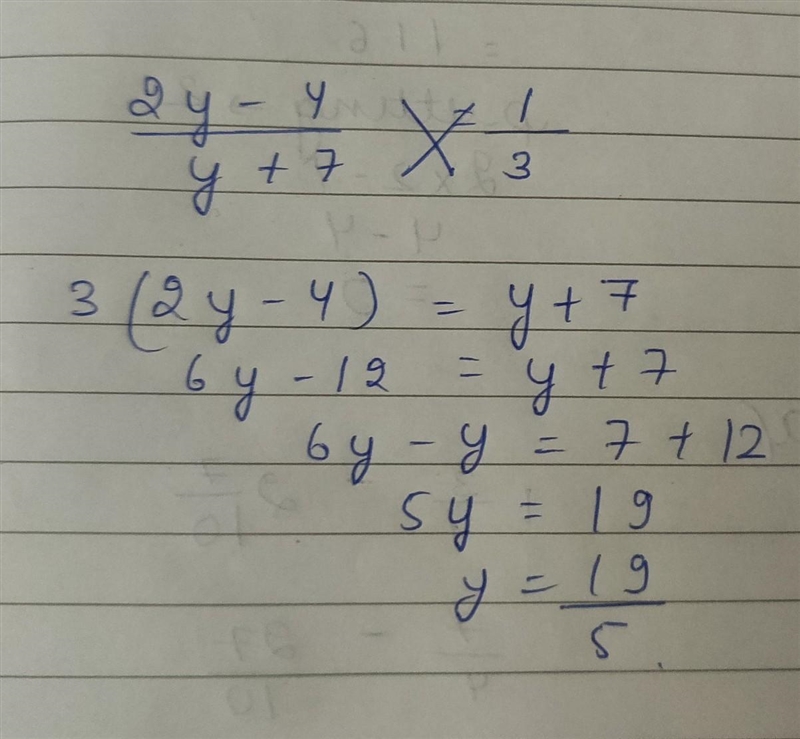 2y - 4 / y + 7 = 1 / 3
3 (2y - 4) = y + 7
6y - 12 = y + 7
6y - y = 7 + 12
5y = 19
y = 19 / 5